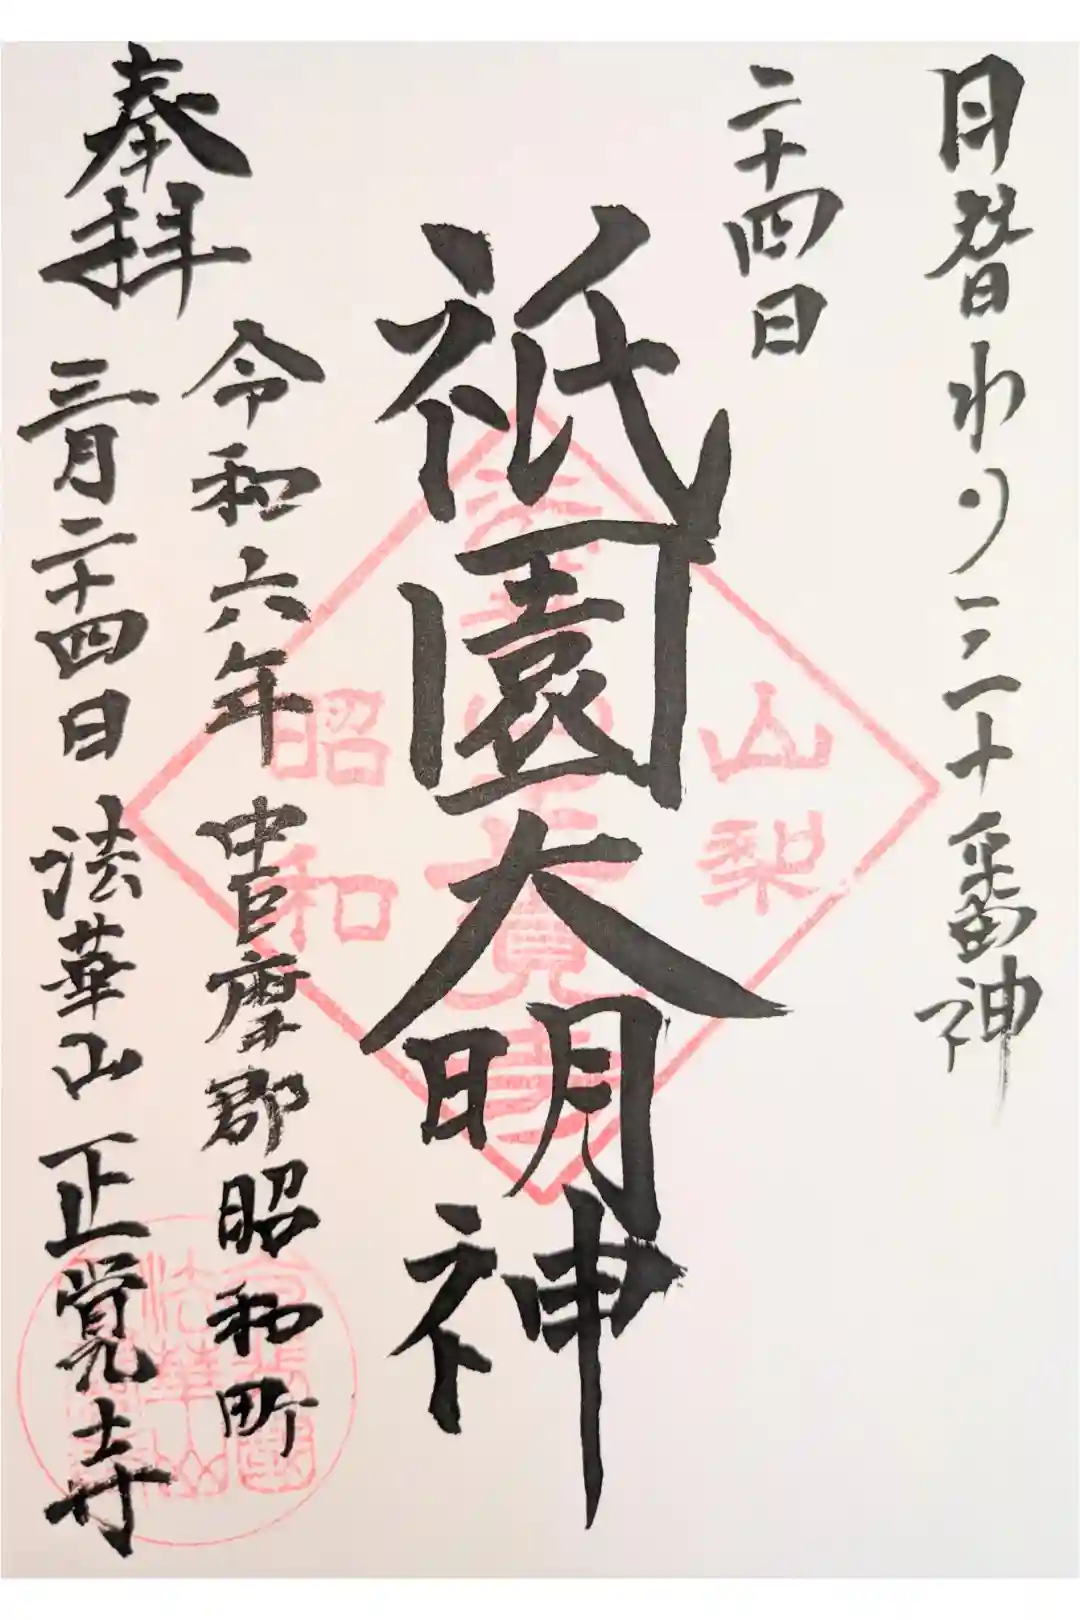 月替わり三十番神
二十四日
祇園大明神
奉拝
令和六年 中巨摩郡昭和町
三月二十四日 法華山 正覚寺
山梨
昭和
法華山